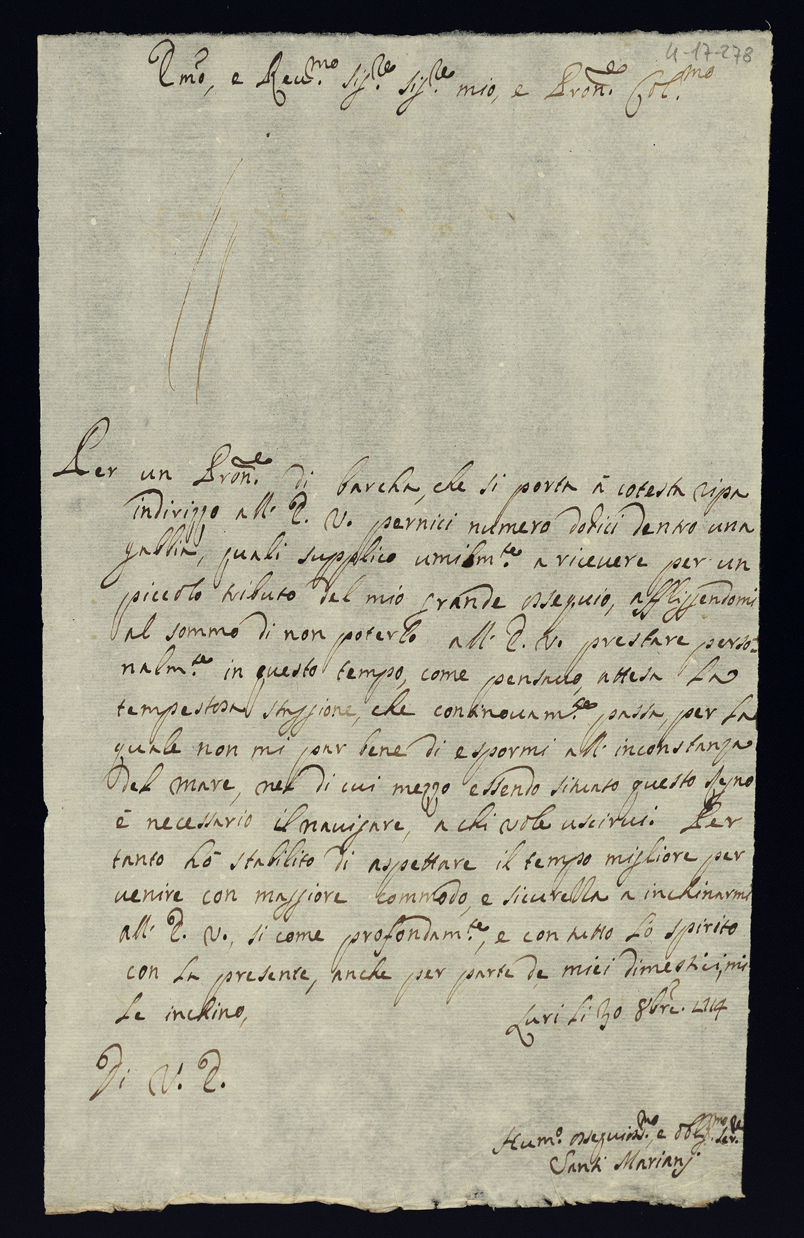 4-17-278
Emo, e Reu.mo Sig.re Sig.re mio, e Pron.e Col.mo
Per un Pron.e di barcha, che si porta à cotesta ripa
indirizzo all' E. V. pernici numero dodici dentro una
gabbia, quali supplico umilm.te a riceuere per un
piccolo tributo del mio grande ossequio, affligendomi
al sommo di non poterlo all' E. V. prestare perso-
nalm.te in questo tempo, come pensauo, attesa La
tempestosa staggione, che continouam.te passa, per La
quale non mi par bene di espormi all' inconstanza
del mare, nel di cui mezzo essendo situato questo Regno
è necessario il nauigare, a chi vole uscirui. Per
tanto hò stabilito di aspettare il tempo migliore per
uenire con maggiore commodo, e sicurezza a inchinarmi
all' E. V., si come profondam.te, e con tutto Lo spirito
con La presente, anche per parte de miei dimestici, mi
Le inchino,
Luri Li 30 8bre. 1714
Di V. E.
Hum.o ossequios.mo e obblig.mo ser.re
Santi Marianj